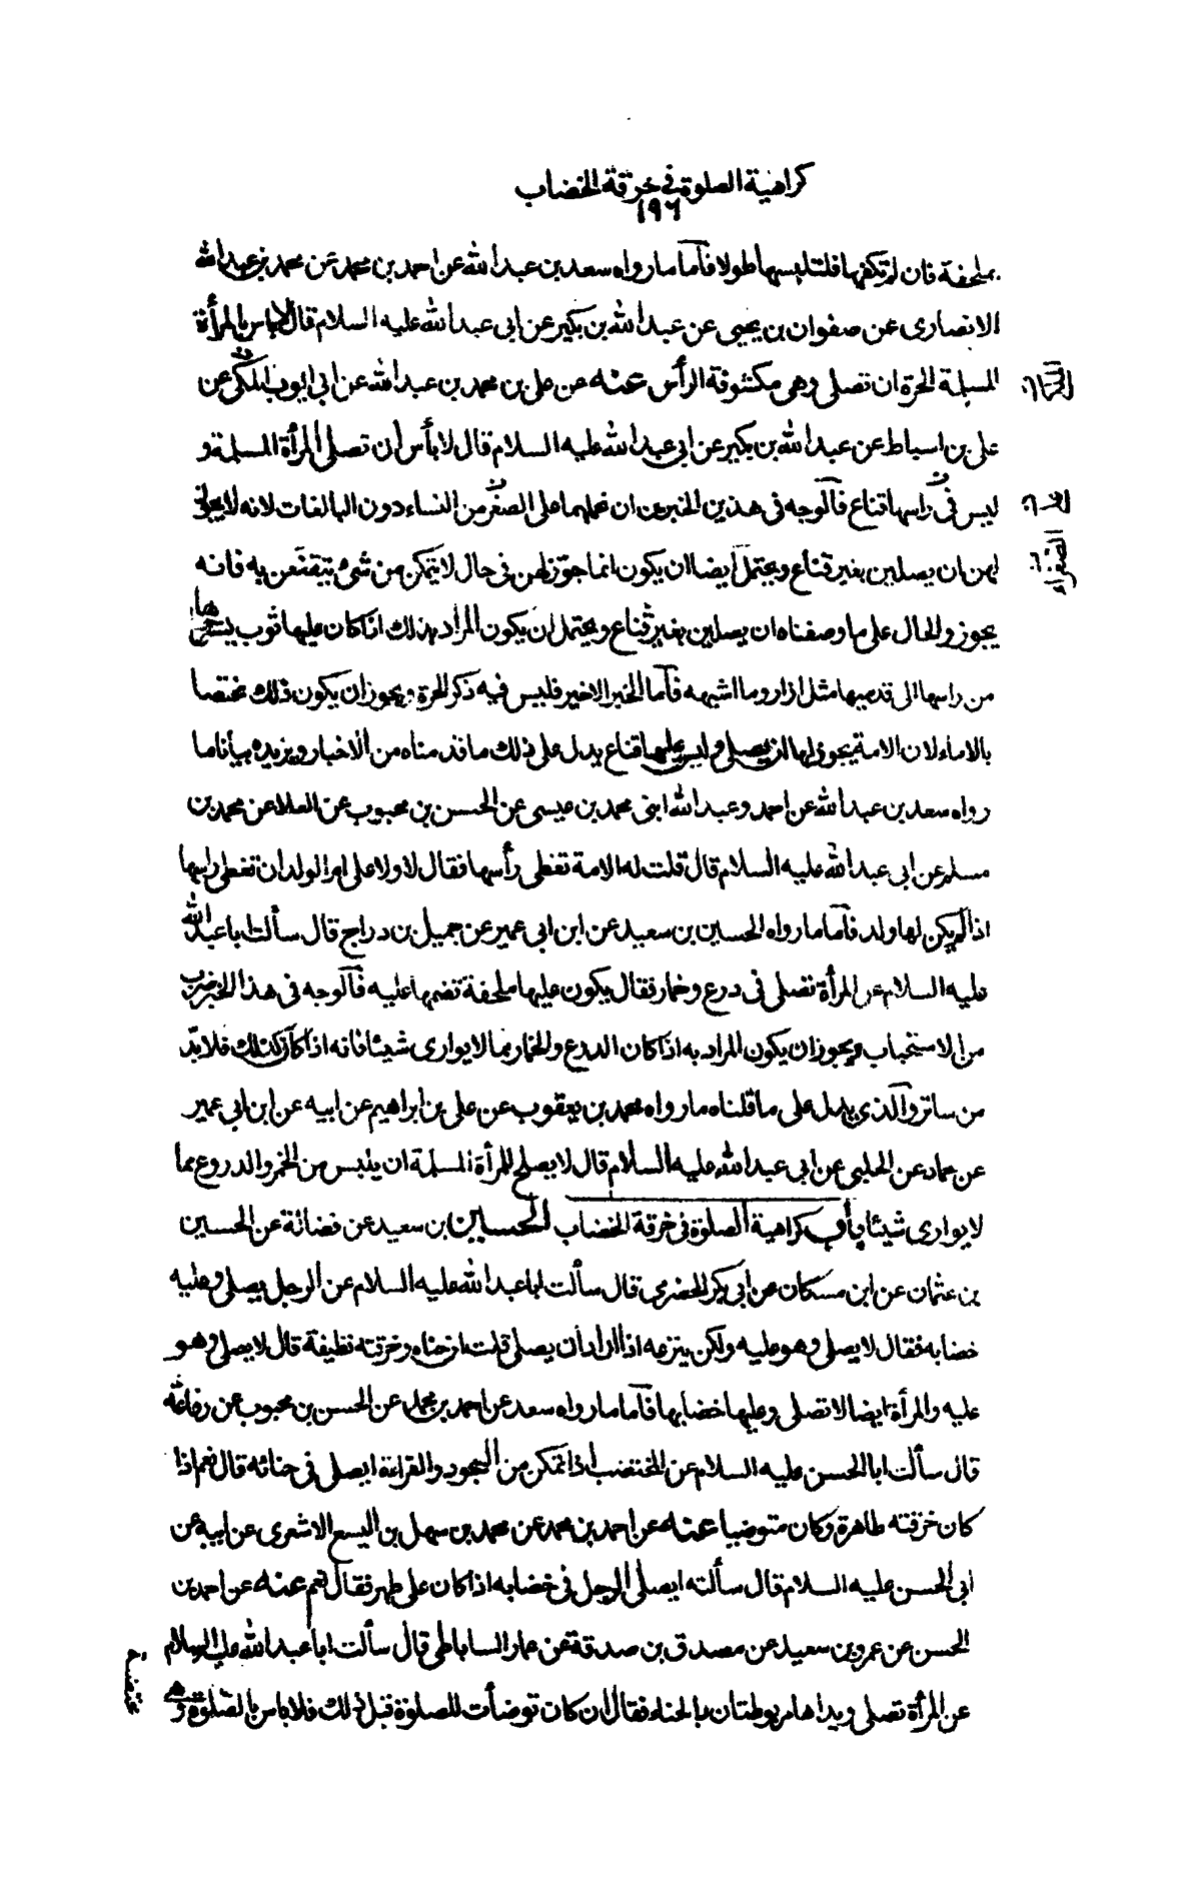 كراهية الصلوة في خرقة الخضاب
١٩٦
بملحفة فان لم تكفها فلتلبسها طولا فأما ما رواه سعد بن عبد الله عن احمد بن محمد عن محمد بن عبد الله
الانصارى عن صفوان بن يحيى عن عبد الله بن بكير عن ابى عبد الله عليه السلام قال لا باس بالمرأة
المسلمة الحرة ان تصلى وهى مكشوفة الرأس عنه عن على بن محمد بن عبد الله عن ابى ايوب المكى عن
على بن اسباط عن عبد الله بن بكير عن ابى عبد الله عليه السلام قال لا بأس ان تصلى المرأة المسلمة و
ليس فى راسها قناع فالوجه فى هذين الخبرين ان نحملهما على الصغر من النساء دون البالغات لانه لا يجوز
لهن ان يصلين بغير قناع ويحتمل ايضا ان يكون انما جوز لهن فى حال لا يتمكن من شئ يتقنعن به فانه
يجوز والحال على ما وصفناه ان يصلين بغير قناع ويحتمل ان يكون المراد بذلك اذا كان عليها ثوب يسترها
من راسها الى قدميها مثل ازار وما اشبهه فأما الخبر الاخير فليس فيه ذكر الحرة ويجوز ان يكون ذلك مختصا
بالاماء لان الامة يجوز لها ان يصلى وليس عليها قناع يدل على ذلك ما قدمناه من الاخبار ويزيده بيانا ما
رواه سعد بن عبد الله عن احمد وعبد الله ابنى محمد بن عيسى عن الحسن بن محبوب عن العلا عن محمد بن
مسلم عن ابى عبد الله عليه السلام قال قلت له الامة تغطى رأسها فقال لا ولا على ام الولد ان تغطى راسها
اذا لم يكن لها ولد فأما ما رواه الحسين بن سعيد عن ابن ابى عمير عن جميل بن دراج قال سألت ابا عبد الله
عليه السلام عن المرأة تصلى فى درع وخمار فقال يكون عليها ملحفة تضمها عليه فالوجه فى هذا الخبر ضرب
من الاستحباب ويجوز ان يكون المراد به اذا كان الدرع والخمار بما لا يوارى شيئا فانه اذا كان كذلك فلا بد
من ساتر والذى يدل على ما قلناه ما رواه محمد بن يعقوب عن على بن ابراهيم عن ابيه عن ابن ابى عمير
عن حماد عن الحلبى عن ابى عبد الله عليه السلام قال لا يصلح للمرأة المسلمة ان يلبس من الخمر والدروع بما
لا يوارى شيئا باب كراهية الصلوة فى خرقة الخضاب الحسين بن سعيد عن فضالة عن الحسين
بن عثمان عن ابن مسكان عن ابى بكر الحضرمى قال سألت ابا عبد الله عليه السلام عن الرجل يصلى وعليه
خضابه فقال لا يصلى وهو عليه ولكن ينزعه اذا اراد ان يصلى قلت ان حناه وخرقته نظيفة قال لا يصلى وهو
عليه والمرأة ايضا لا تصلى وعليها خضابها فأما ما رواه سعد عن احمد بن محمد عن الحسن بن محبوب عن رفاعة
قال سألت ابا الحسن عليه السلام عن المختضب اذا تمكن من السجود والقراءة ايصلى فى حنائه قال نعم اذا
كان خرقته طاهرة وكان متوضيا عنه عن احمد بن محمد عن محمد بن سهل بن اليسع الاشعرى عن ابيه عن
ابى الحسن عليه السلام قال سألته ايصلى الرجل فى خضابه اذا كان على طهر فقال نعم عنه عن احمد بن
الحسن عن عمرو بن سعيد عن مصدق بن صدقة عن عمار الساباطى قال سألت ابا عبد الله عليه السلام
عن المرأة تصلى ويداها مربوطتان بالحناء فقال ان كان توضأت للصلوة قبل ذلك فلا باس بالصلوة وهى